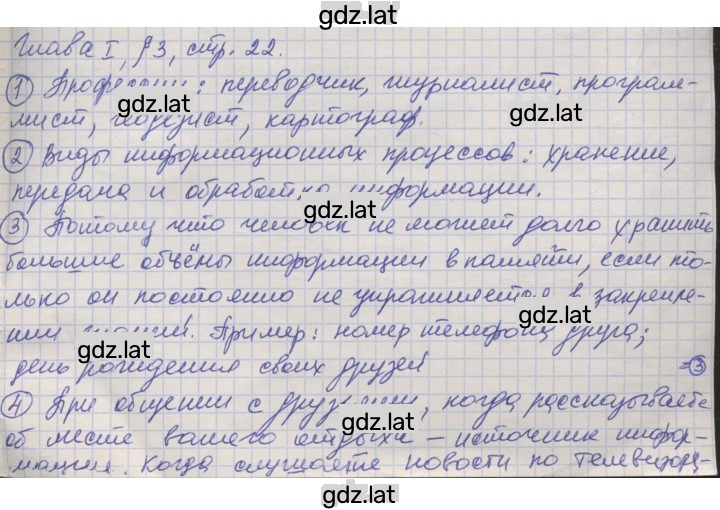 gdz.lat
Глава I, §3, стр. 22.
1 Профессии: переводчик, журналист, програм-
gdz.lat
мист, геодезист, картограф.
gdz.lat
2 Виды информационных процессов: хранение,
передача и обработка информации.
gdz.lat
3 Потому что человек не может долго хранить
большие объёмы информации в памяти, если то-
лько он постоянно не упражняется в закрепле-
нии знаний. Пример: номер телефона друга;
gdz.lat
gdz.lat
день рождения своих друзей
3
4 При общении с друзьями, когда рассказываете
gdz.lat
об месте вашего отдыха – источник инфор-
мации. Когда слушаете новости по телевизору-
gdz.lat